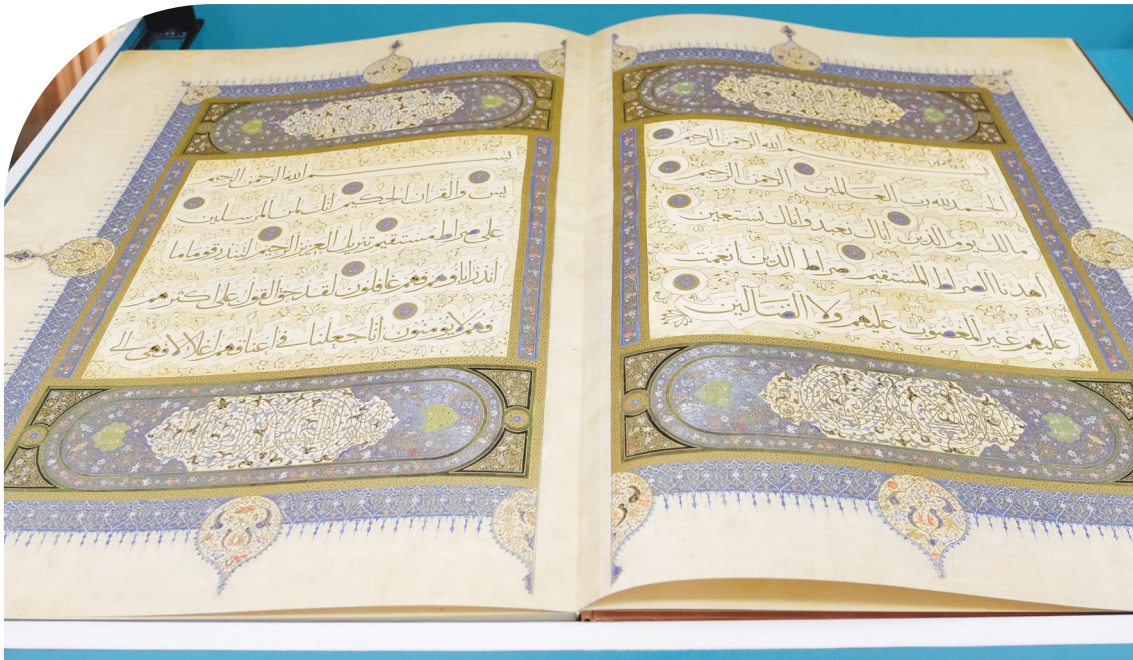 بسم الله الرحمن الرحيم
الحمد لله رب العالمين الرحمن الرحيم
مالك يوم الدين اياك نعبد واياك نستعين
اهدنا الصراط المستقيم صراط الذين انعمت
عليهم غير المغضوب عليهم ولا الضالين
بسم الله الرحمن الرحيم
يس والقران الحكيم انك لمن المرسلين
على صراط مستقيم تنزيل العزيز الرحيم لتنذر قوما ما
انذر اباوهم فهم غافلون لقد حق القول على اكثرهم
فهم لا يومنون انا جعلنا في اعناقهم اغلالا فهي الى